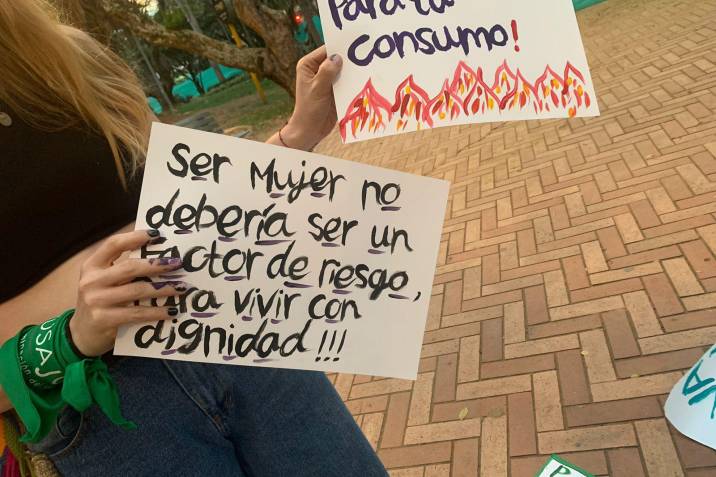 Para tu
consumo!
Ser Mujer no
debería ser un
Factor de riesgo,
Para vivir con
dignidad!!!